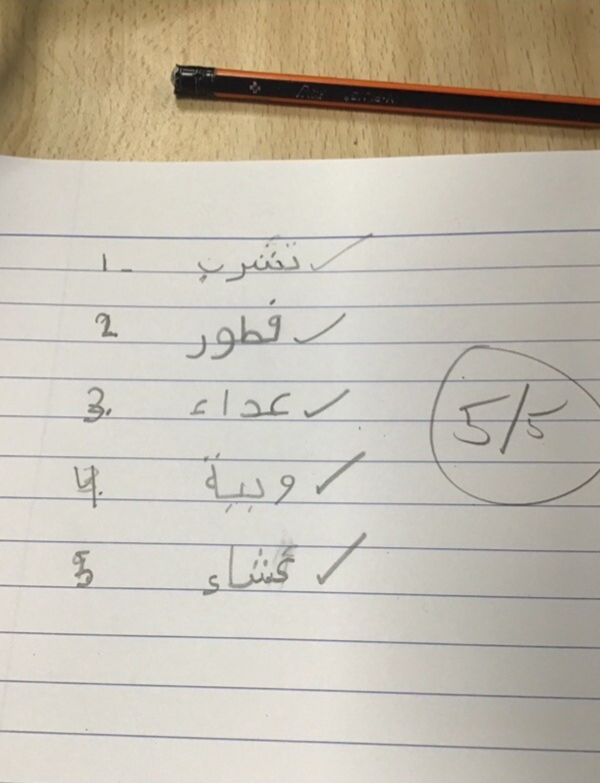 1- تشرب
2. فطور
3. عداء
4. وبية
5 عشاء
5/5